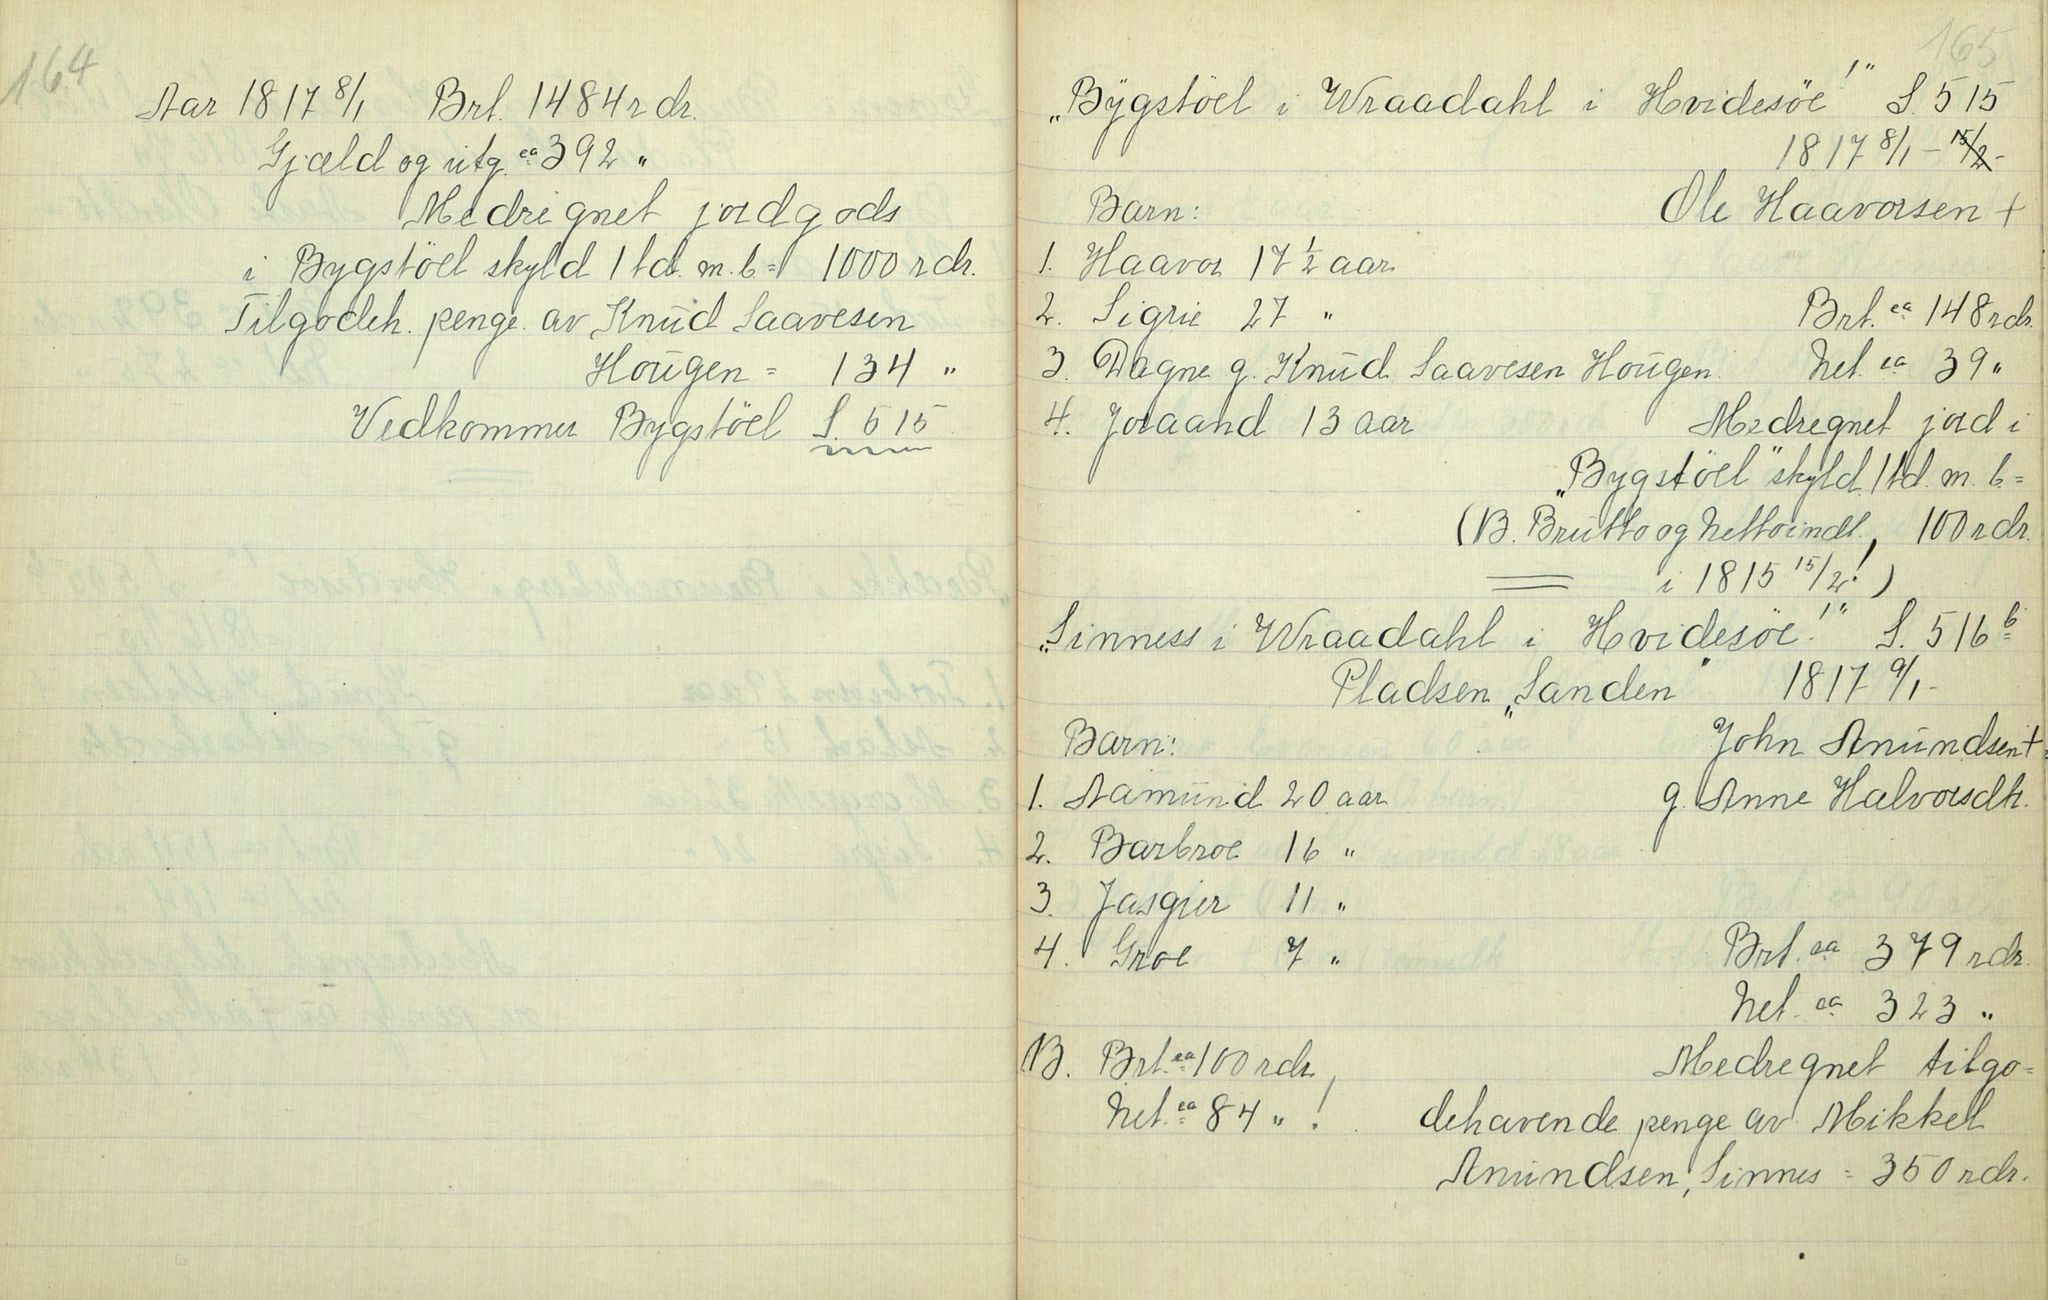 164
Aar 1817 8/1 Brt. 1484 rdr.
Gjæld og utg. ca 392 "
Medregnet jordgods
i Bygstöel skyld 1 td. m. b = 1000 rdr.
Tilgodeh. penge av Knud Saavesen
Hougen = 134 "
Vedkommer Bygstöel S. 515
165
„Bygstöel i Wraadahl i Hvidesöe!" S. 515
1817 8/1 - 15/2 -
Barn: Ole Haavorsen +
1. Haavor 17 1/2 aar
2. Sigrie 27 " Brt. ca 148 rdr.
3. Dagne g. Knud Saavesen Hougen. Net. ca 39 "
4. Joraand 13 aar Medregnet jord i
„Bygstöel" skyld 1 td. m. b. =
(B. Brutto og Nettoindt. , 100 rdr.
i 1815 15/2! )
„Sinness i Wraadahl i Hvidesöe!" S. 516 b
Pladsen „Sanden" 1817 9/1 -
Barn: John Anundsen +
1. Aamund 20 aar g. Anne Halvorsdtr.
2. Barbroe 16 "
3. Jasgier 11 "
4. Groe 7 " Brt. ca 379 rdr.
Net. ca 323 "
B. Brt. ca 100 rdr,
Net. ca 84 " !
Medregnet tilgo=
dehavende penge av Mikkel
Anundsen, Sinnes = 350 rdr.